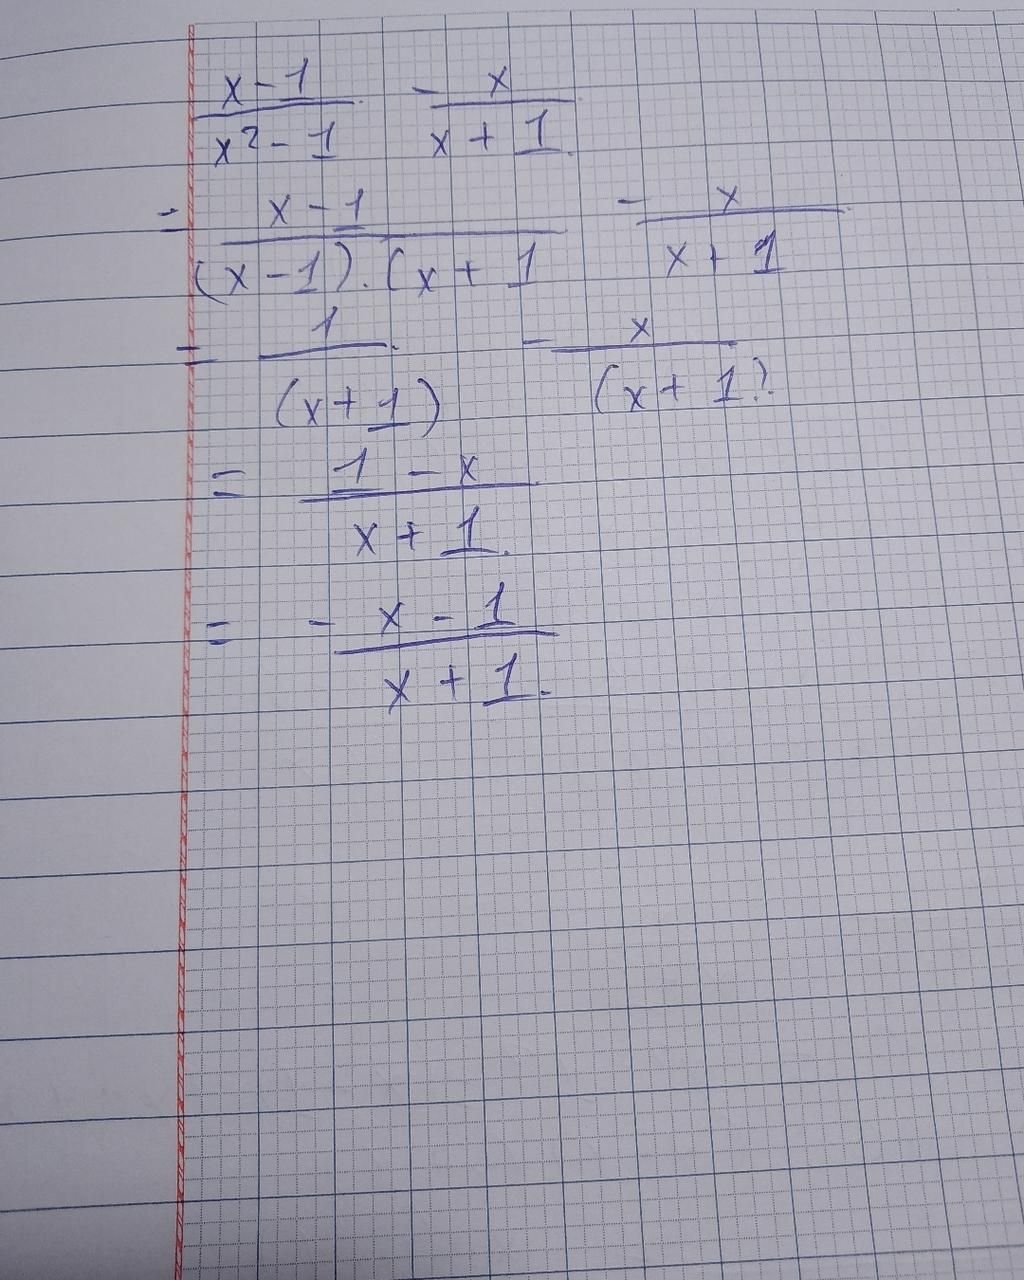 x - 1 / x² - 1 - x / x + 1
= x - 1 / (x - 1) . (x + 1 - x / x + 1
= 1 / (x + 1) - x / (x + 1)
= 1 - x / x + 1
= - x - 1 / x + 1.